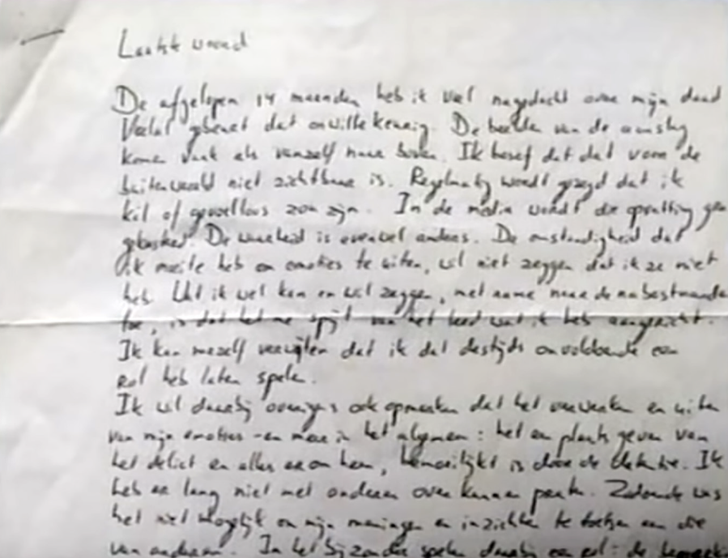 Laatste woord
De afgelopen 14 maanden heb ik veel nagedacht over mijn daad
Veelal gebeurt dat onwillekeurig. De beelden van de aanslag
komen vaak als vanzelf naar boven. Ik besef dat dat voor de
buitenwereld niet zichtbaar is. Regelmatig wordt gezegd dat ik
kil of gevoelloos zou zijn. In de media wordt die opvatting
De waarheid is evenwel anders. De omstandigheid dat
ik moeite heb om emoties te uiten, wil niet zeggen dat ik ze niet
heb. Wat ik wel kan en wil zeggen, met name naar de nabestaanden
toe, is dat het me spijt van het leed wat ik heb aangericht.
Ik kan mezelf verwijten dat ik dat destijds onvoldoende een
rol heb laten spelen.
Ik wil daarbij overigens ook opmerken dat het verwerken en uiten
van mijn emoties - en meer in het algemeen: het een plaats geven van
het delict en alles er om heen, bemoeilijkt is door de detentie. Ik
heb er lang niet met anderen over kunnen praten. Zodoende was
het niet mogelijk om mijn meningen en inzichten te toetsen aan die
van anderen. In het bijzonder spelen daarbij een rol: de